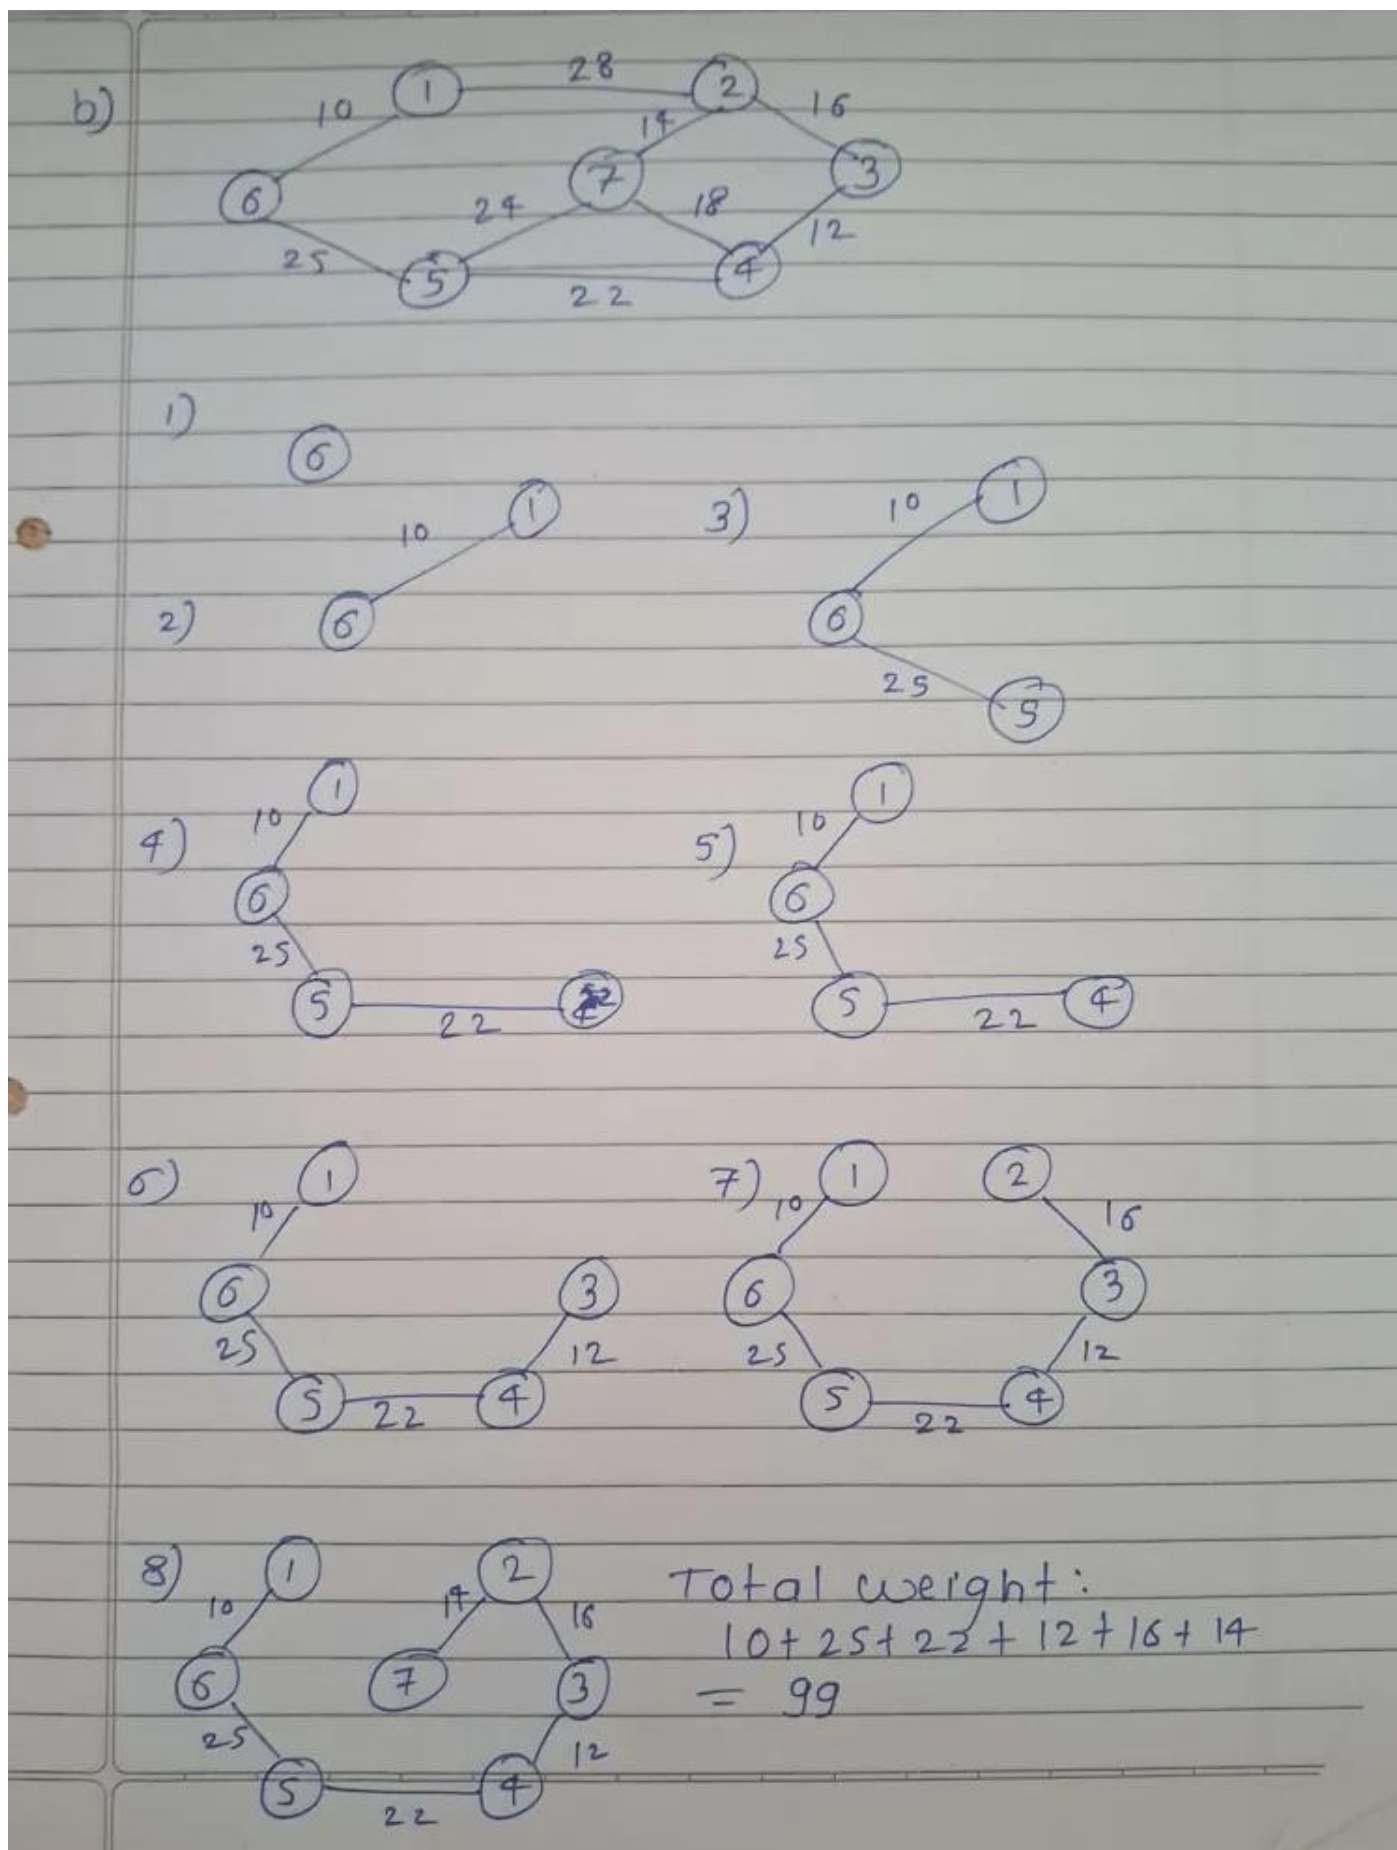 b)
1 28 2
10 14 16
6 7 3
24 18
25 5 22 4 12
1)
6
2)
10 1
6
3)
10 1
6
25
5
4)
1
10
6
25
5 22
5)
1
10
6
25
5 22 4
6)
1
10
6 3
25 12
5 22 4
7)
1 2
10 16
6 3
25 12
5 22 4
8)
1 2
10 14 16
6 7 3
25 12
5 22 4
Total weight:
10+25+22+12+16+14
= 99